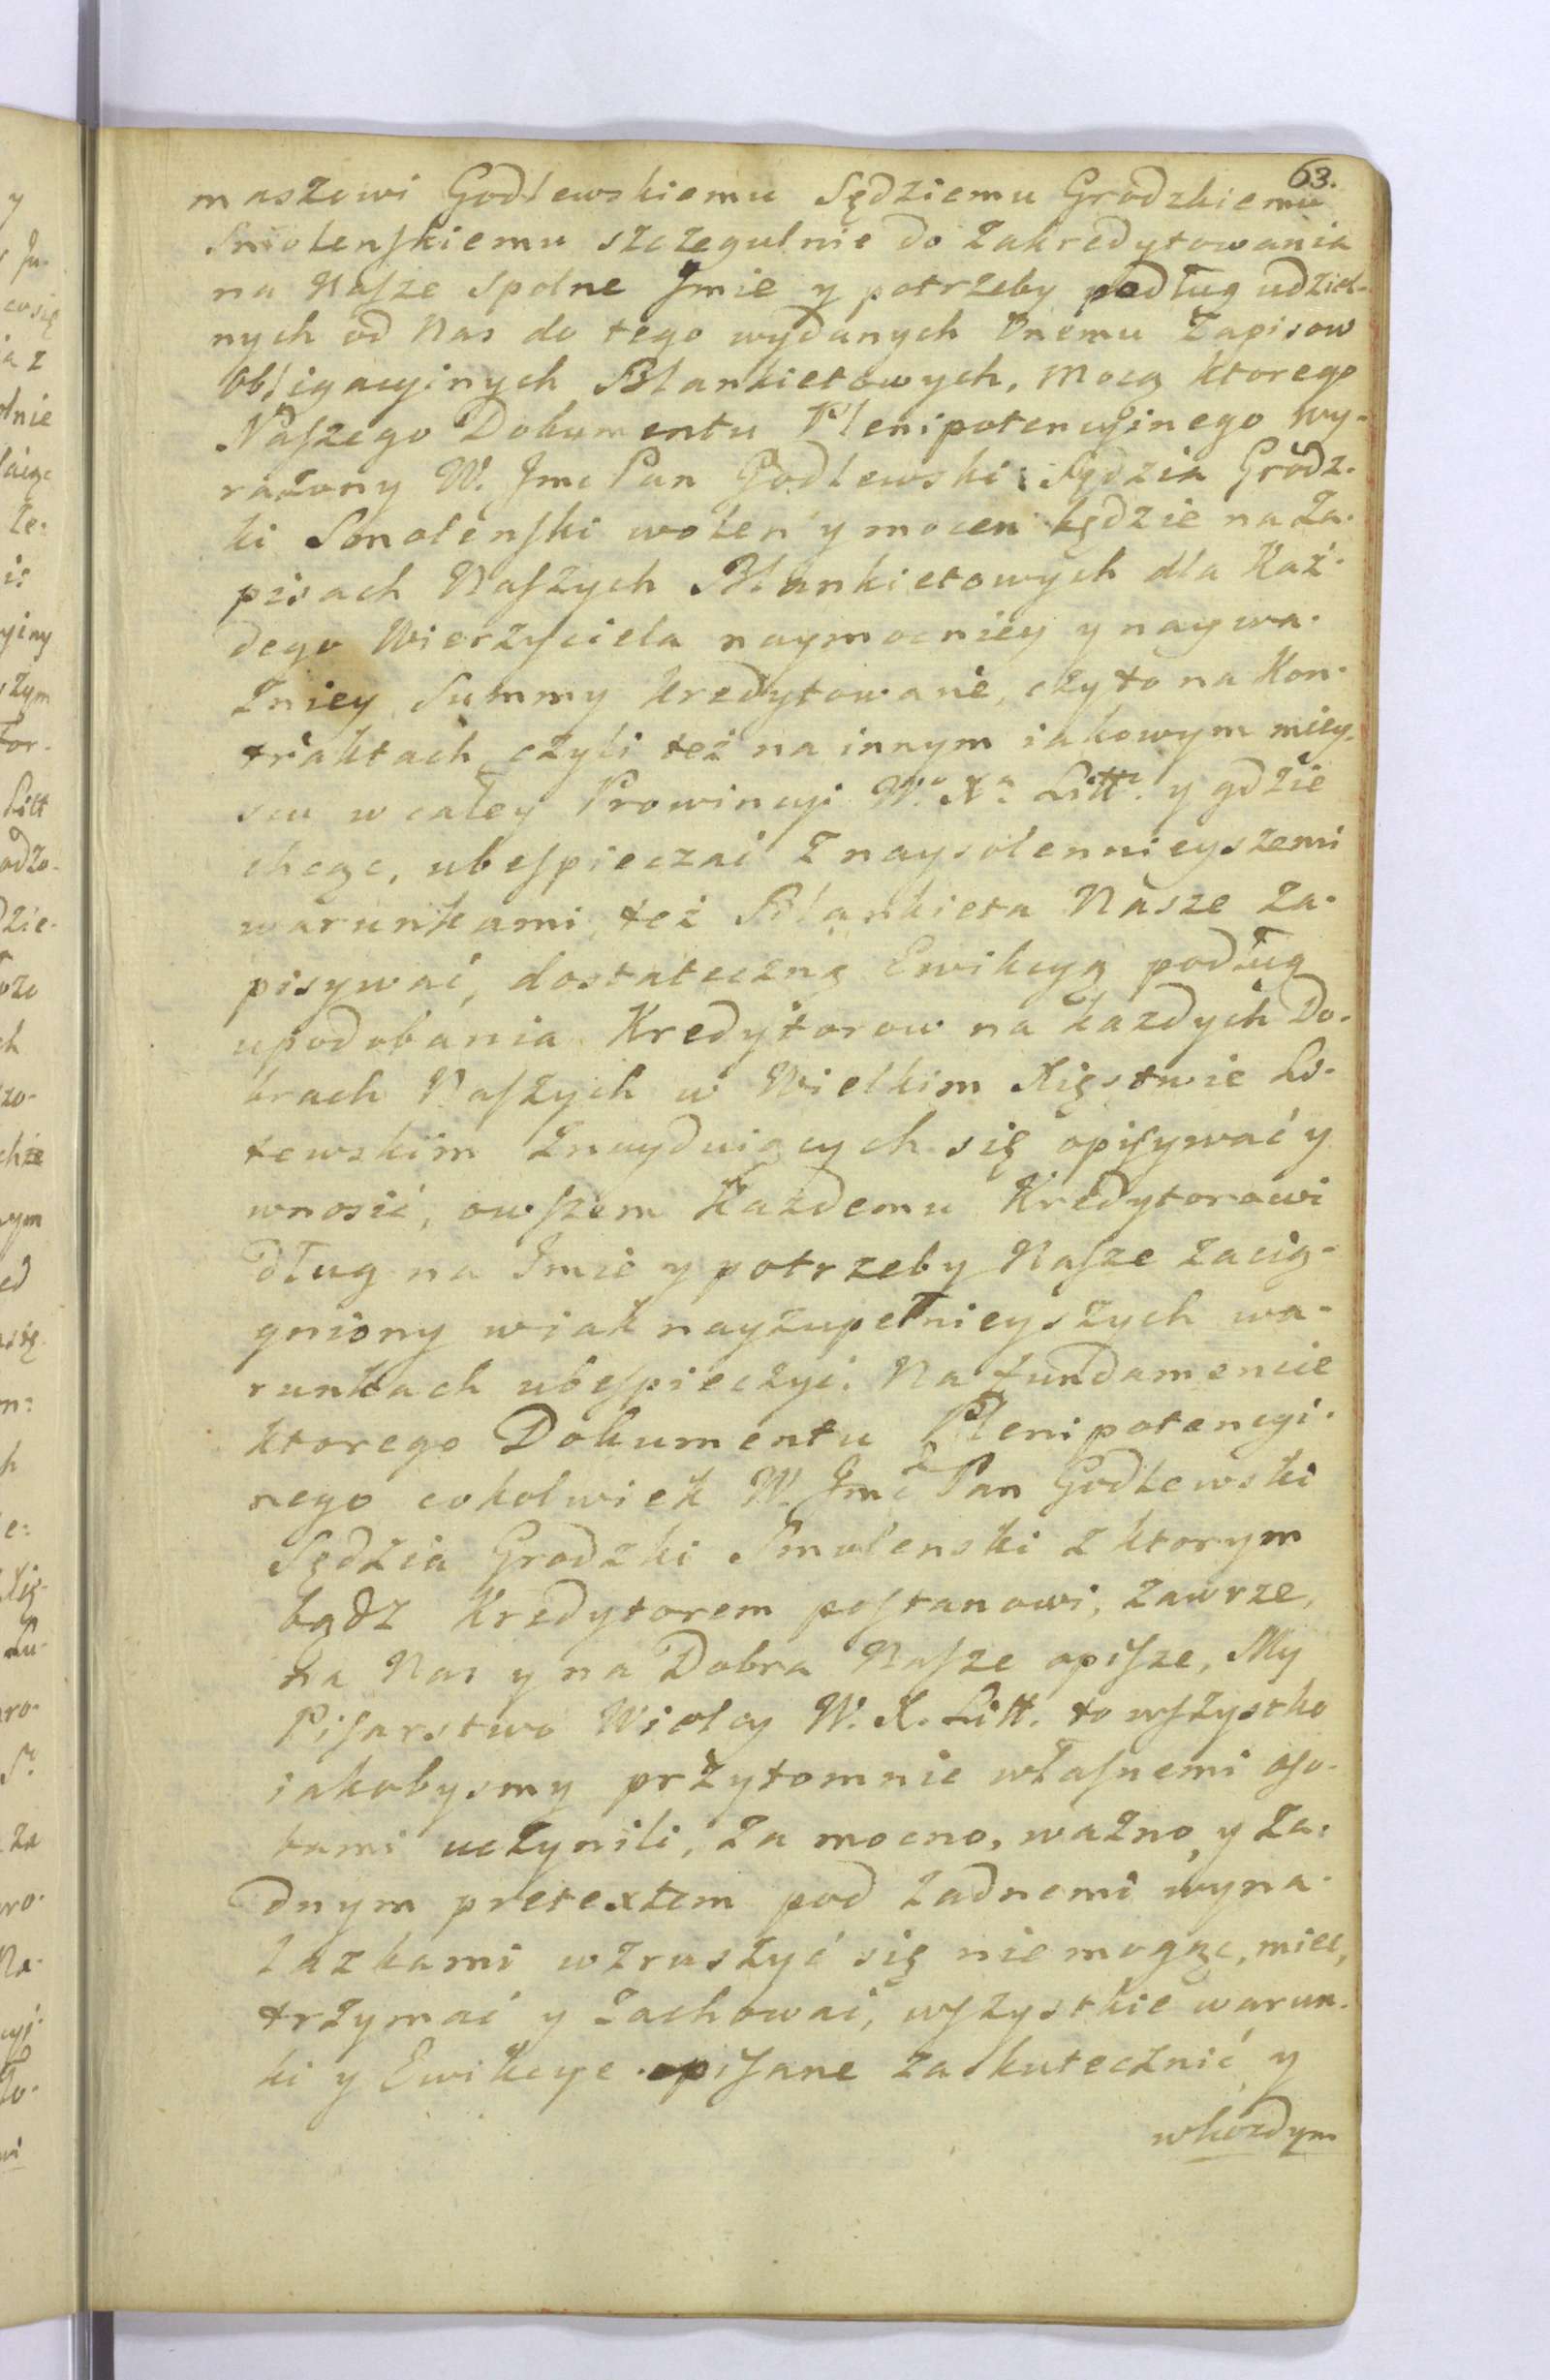 63.
maszowi Godlewskiemu Sędziemu Grodzkiemu
Smolenſkiemu szczegulnie do Zakredytowania
na Naſze Spolne Jmie y potrzeby podług udziel-
nych od Nas do tego wydanych Onemu Zapisow
Obligacyinych Blankietowych, Mocą ktorego
Naſzego Dokumentu Plenipotencyinego wy-
rażony W. Jmc Pan Godlewski Sędzia Grodz-
ki Smolenſki wolen y mocen będzie na Za-
pisach Naſzych Blankietowych dla Każ-
dego Wierzyciela naymocniey y naywa-
żniey Summy kredytowane, czyto na Kon-
traktach czyli też na innym iakowym miey-
scu w całey Prowincyi Wº Xª Littº y gdzie
chcąc, ubeſpieczać Z naysolennieyszemi
warunkami też Blankieta Nasze Za-
pisywać, dostateczną Ewikcyą podług
upodobania Kredytorow na każdych Do-
brach Naſzych w Wielkim Xięstwie Li-
tewskim Znayduiących się opiſywać y
wnosić, owſzem Każdemu Kredytorowi
Dług na Jmie y potrzeby Naſze Zacią-
gniony w iak nayzupełnieyszych wa-
runkach ubeſpieczyć. Na fundamencie
ktorego Dokumentu Plenipotencyi-
nego cokolwiek W. Jmc Pan Godlewski
Sędzia Grodzki Smolenski z ktorym
bądz Kredytorem poſtanowi, zawrze,
na Nas y na Dobra Naſze opiſze, My
Piſarstwo Wielcy W. X. Litt. to wſzystko
iakobysmy przytomnie właſnemi oſo-
bami uczynili, za mocno, ważno, y ża-
dnym pretextem pod żadnemi wyna-
lazkami wzruszyć się niemogąc, mieć,
trzymać y Zachować, wſzystkie warun-
ki y Ewikcye opiſane zaskutecznić y
w każdym